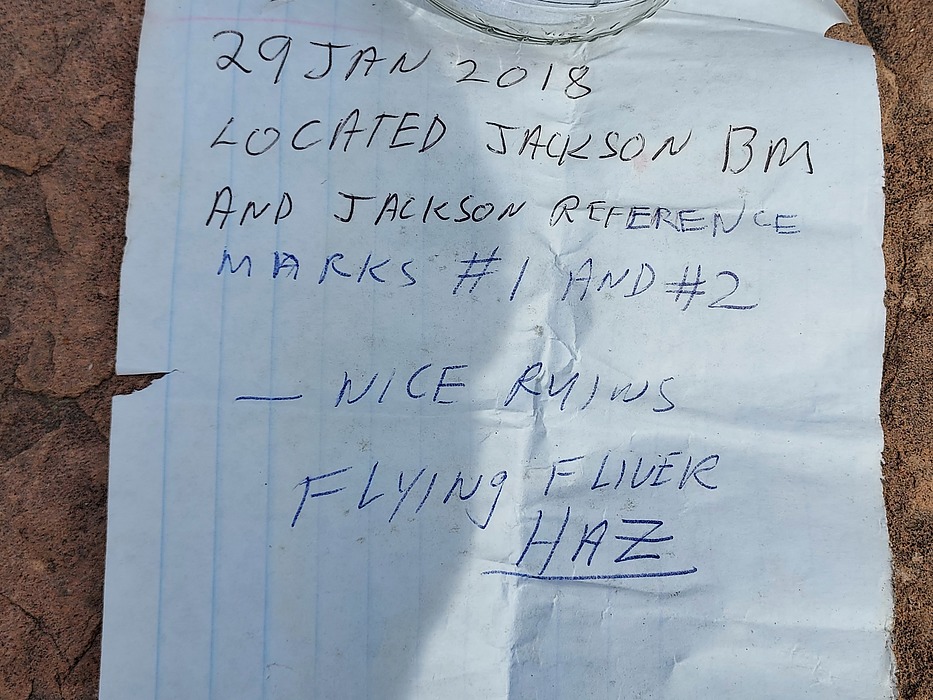 29 JAN 2018
LOCATED JACKSON BM
AND JACKSON REFERENCE
MARKS #1 AND #2
— NICE RUINS
FLYING FLIVER
HAZ